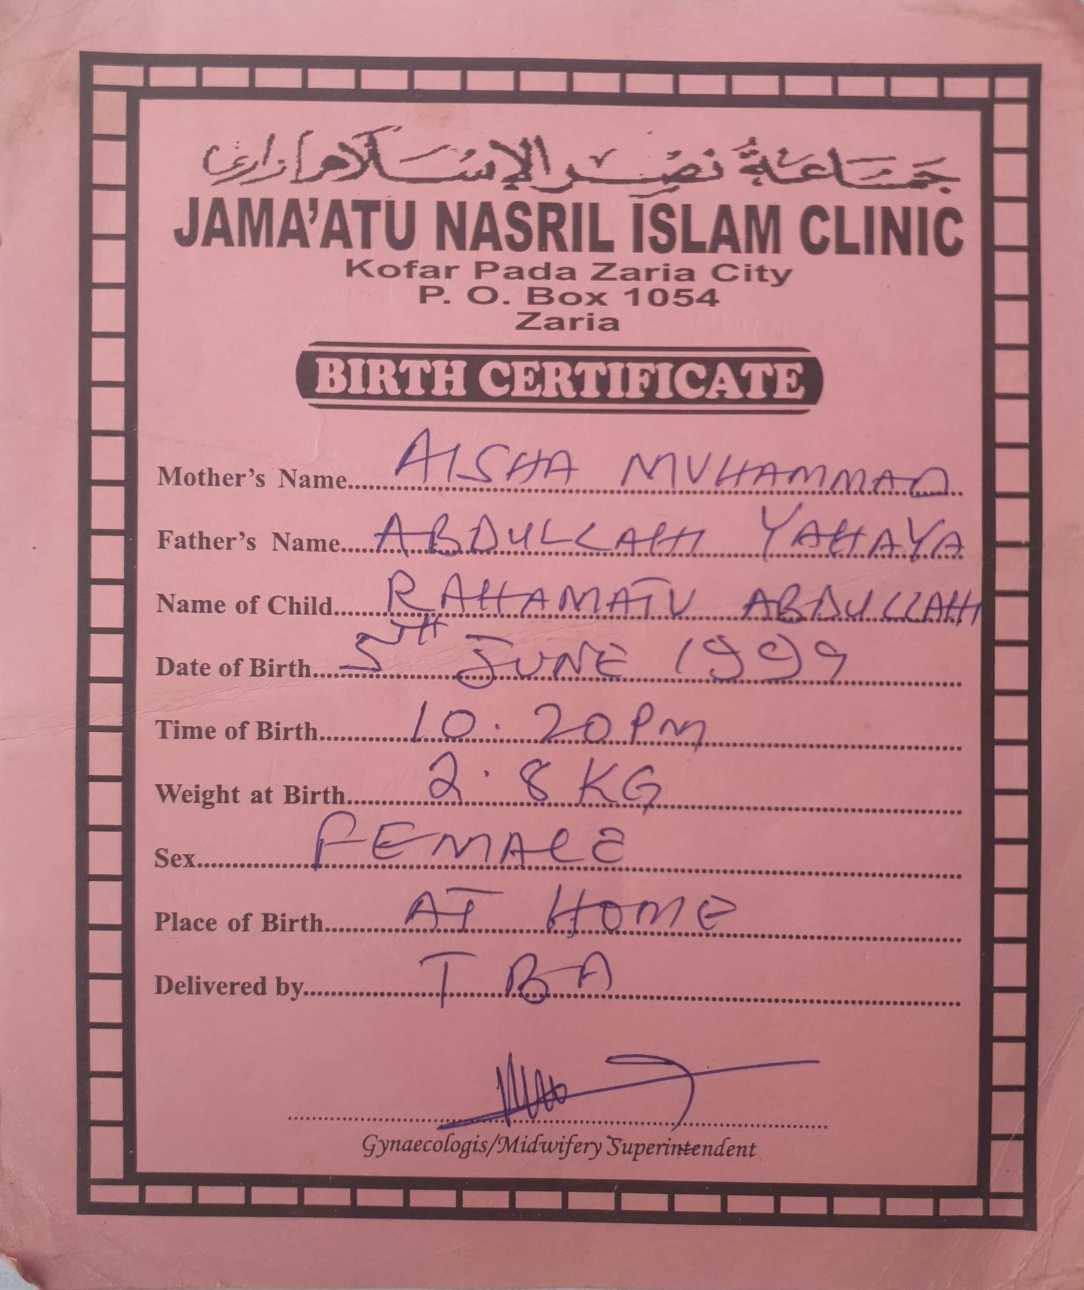 جماعة نصر الإسلام زاري
JAMA'ATU NASRIL ISLAM CLINIC
Kofar Pada Zaria City
P. O. Box 1054
Zaria
BIRTH CERTIFICATE
Mother's Name AISHA MUHAMMAD
Father's Name ABDULLAHI YAHAYA
Name of Child RAHAMATU ABDULLAHI
Date of Birth 5TH JUNE 1999
Time of Birth 10.20PM
Weight at Birth 2.8KG
Sex FEMALE
Place of Birth AT HOME
Delivered by TBA
Gynaecologis/Midwifery Superintendent